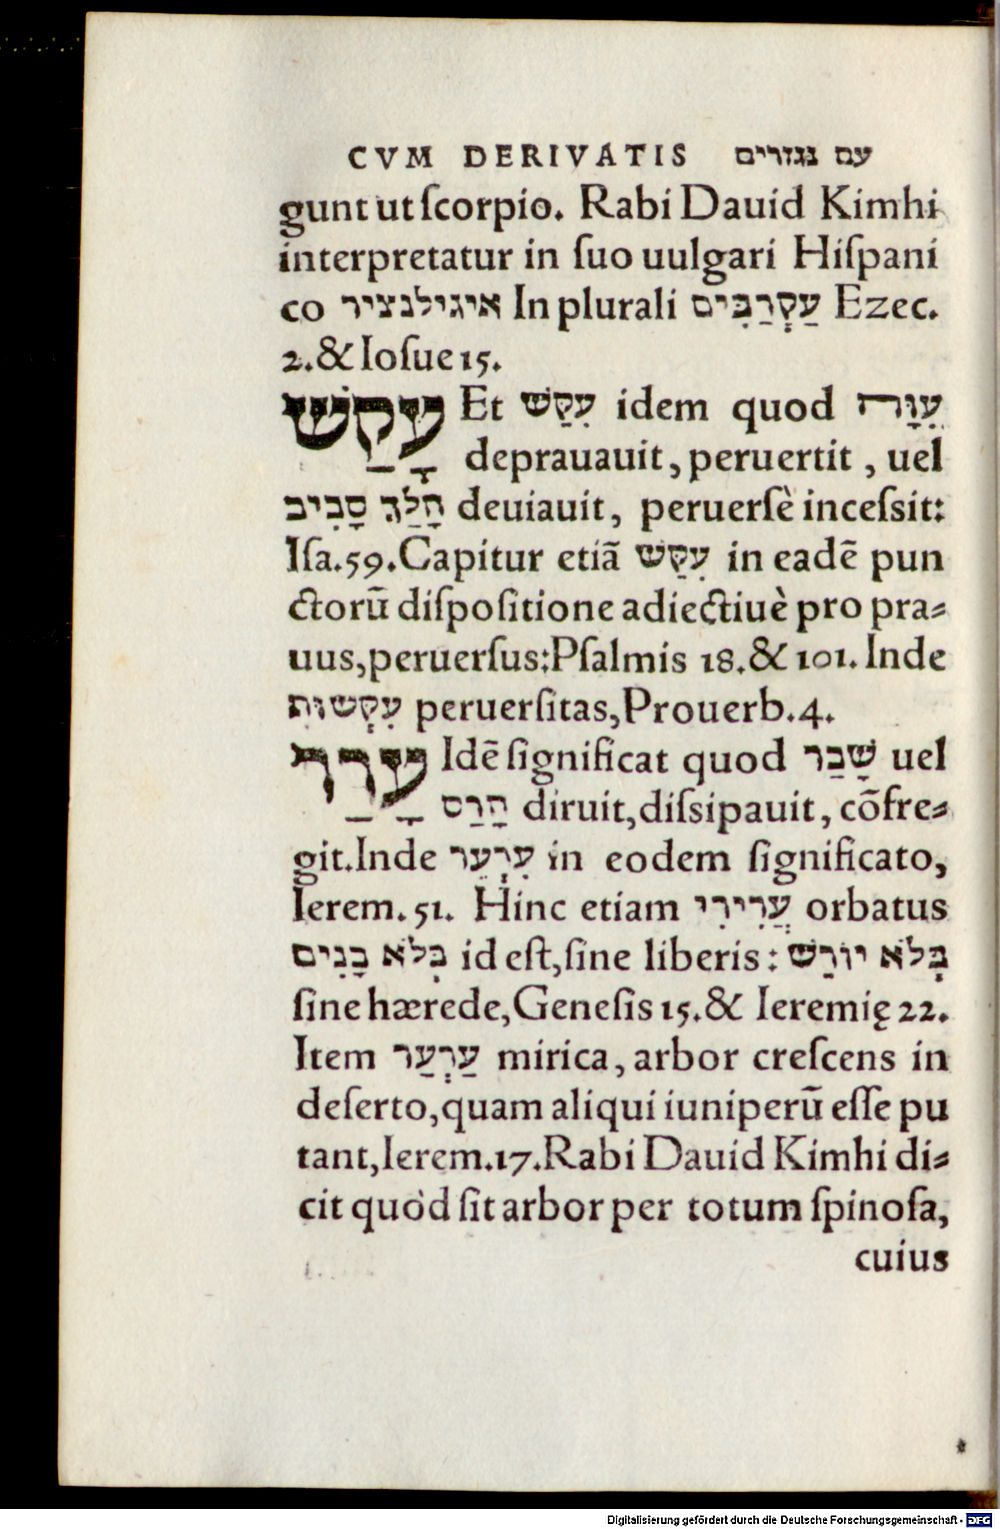 CVM DERIVATIS עם נגזרים
gunt ut ſcorpio. Rabi Dauid Kimhi
interpretatur in ſuo uulgari Hiſpani
co איגילנציר In plurali עַקְרַבִּים Ezec.
2.& Ioſue 15.
עָקַשׁ Et עִקַּשׁ idem quod עִוָּה
deprauauit, peruertit, uel
הָלַךְ סָבִיב deuiauit, peruerſè inceſsit:
Iſa.59.Capitur etiã עִקַּשׁ in eadẽ pun
ctorũ diſpoſitione adiectiuè pro pra⸗
uus,peruerſus:Pſalmis 18.& 101. Inde
עִקְּשׁוּת peruerſitas,Prouerb.4.
עָרַר Idẽ ſignificat quod שָׁבַר uel
הָרַס diruit,diſsipauit, cõfre⸗
git.Inde עִרְעֵר in eodem ſignificato,
Ierem. 51. Hinc etiam עֲרִירִי orbatus
בְּלֹא בָנִים id eſt,ſine liberis: בְּלֹא יוֹרֵשׁ
ſine hærede,Geneſis 15.& Ieremię 22.
Item עַרְעַר mirica, arbor creſcens in
deſerto,quam aliqui iuniperũ eſſe pu
tant,Ierem.17.Rabi Dauid Kimhi di⸗
cit quòd ſit arbor per totum ſpinoſa,
cuius
Digitalisierung gefördert durch die Deutsche Forschungsgemeinschaft - DFG